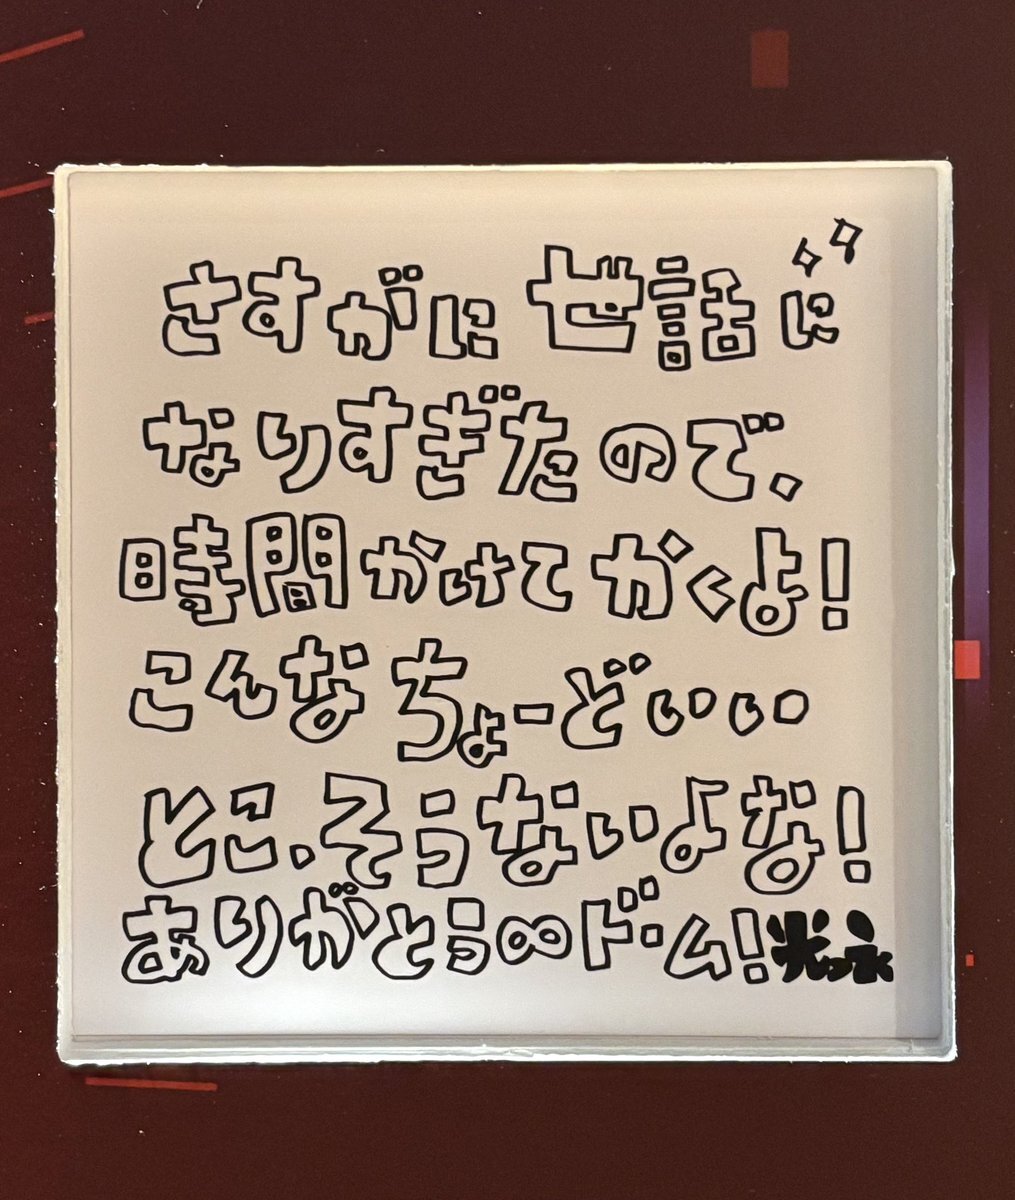 さすがに世話に
なりすぎたので、
時間かけてかくよ!
こんなちょーどいい
とこ、そうないよな!
ありがとう∞ドーム!